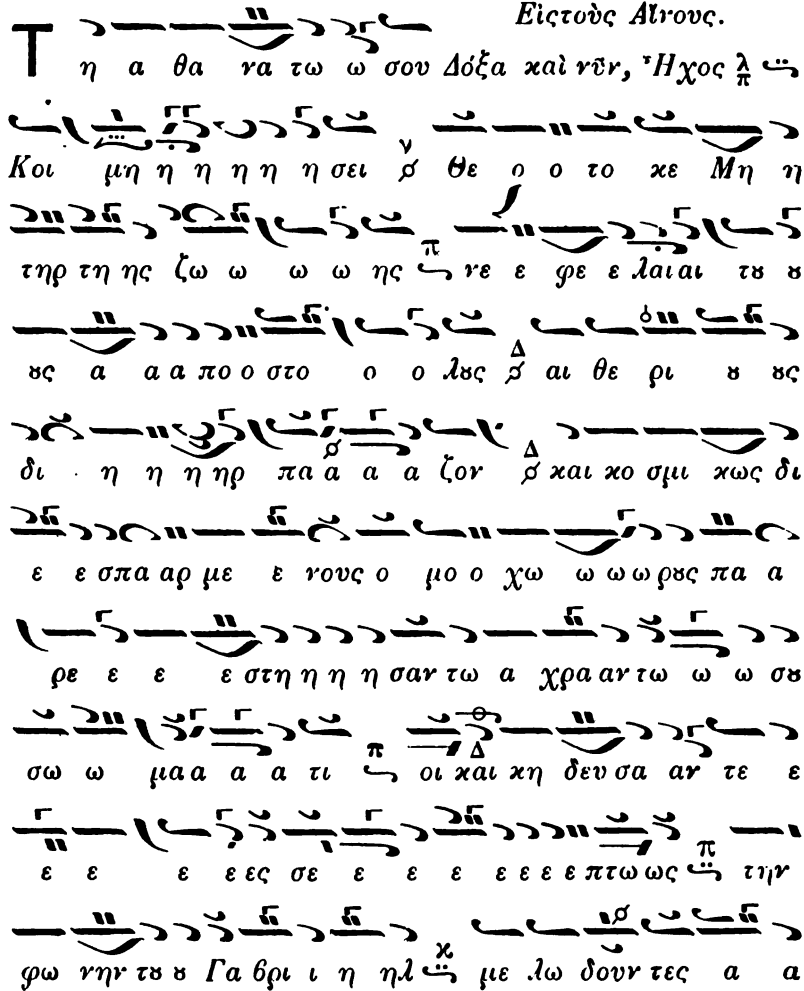 Εἰς τοὺς Αἴνους.
Τ η α θα να τω ω σου Δόξα καὶ νῦν, Ἦχος λ π
Κοι μη η η η η η σει ν Θε ο ο το κε Μη η
τηρ τη ης ζω ω ω ω ης π νε ε φε ε λαι αι τȣ ȣ
ȣς α α α πο ο στο ο ο λȣς Δ αι θε ρι ȣ ȣς
δι η η η ηρ πα α α α ζον Δ και κο σμι κως δι
ε ε σπα αρ με ε νους ο μο ο χω ω ω ω ρȣς πα α
ρε ε ε ε στη η η η σαν τω α χρα αν τω ω ω σȣ
σω ω μα α α α τι π οι και κη δευ σα αν τε ε
ε ε ε ε ες σε ε ε ε ε ε ε ε πτω ως π την
φω νην τȣ ȣ Γα βρι ι η ηλ κ με λω δουν τες α α